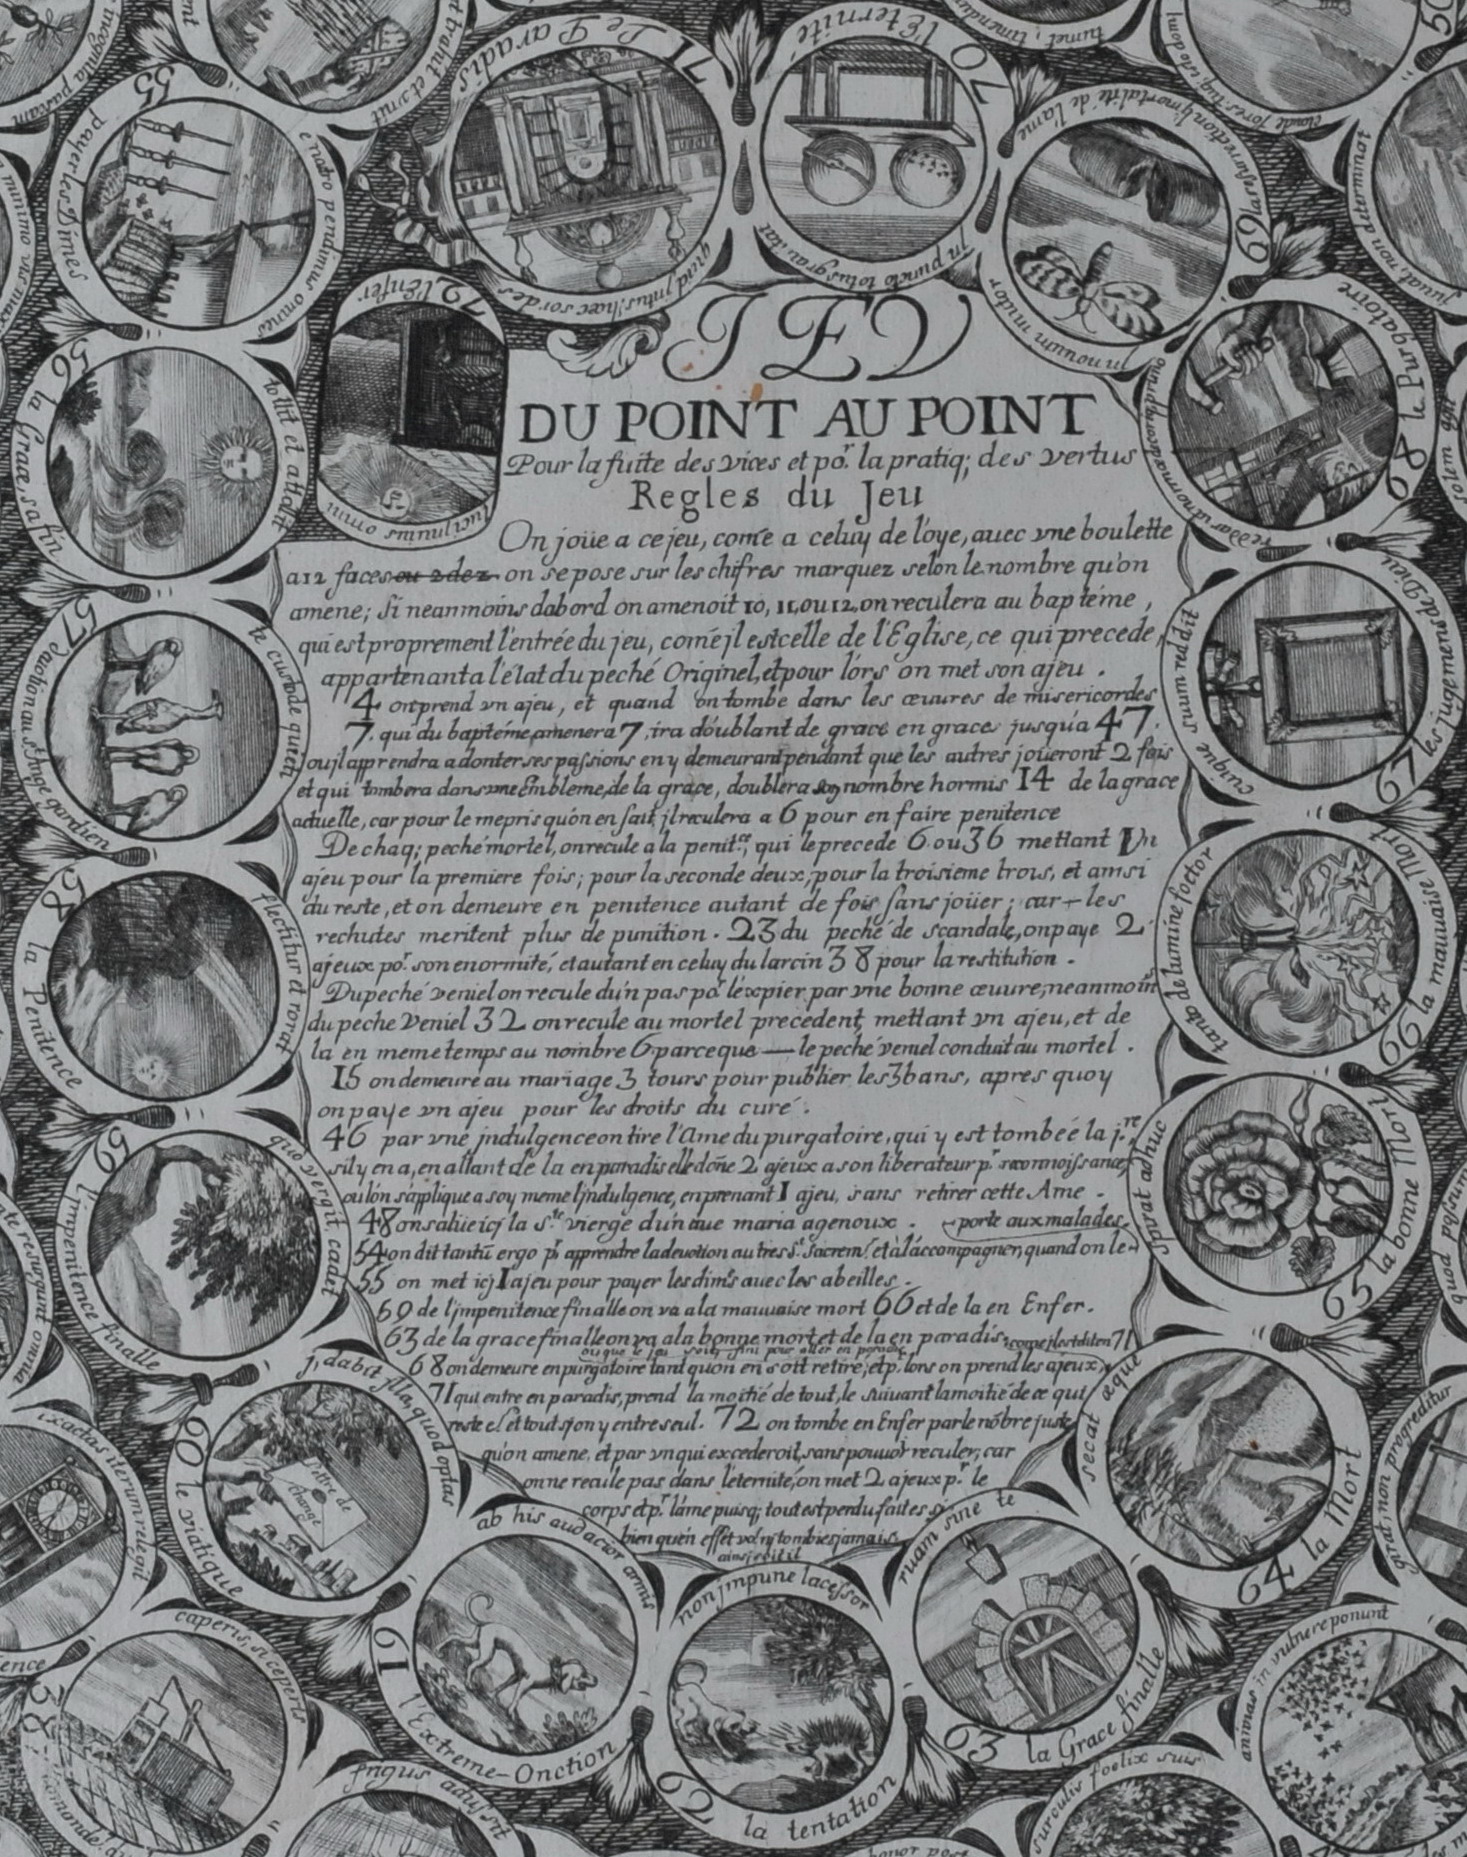 JEV
DU POINT AU POINT
Pour la fuite des vices et por. la pratiq; des vertus
Regles du Jeu
On joüe a ce jeu, come a celuy de l'oye, avec vne boulette
a 12 faces ou 2 dez on se pose sur les chifres marquez selon le nombre qu'on
amene; Si neanmoins dabord on amenoit 10, 11, ou 12, on reculera au baptéme,
qui est proprement l'entrée du jeu, coméjl est celle de l'Eglise, ce qui precede,
appartenant a l'élat du peché Originel, et pour l'ors on met son ajeu.
4 on prend vn ajeu, et quand on tombe dans les œuvres de misericordes
7. qui du baptéme amenera 7, ira doublant de grace en graces jusqu'a 47.
ou jl apprendra a donter ses passions en y demeurant pendant que les autres joüeront 2 fois
et qui tombera dans vne Embleme, de la grace, doublera son nombre hormis 14 de la grace
actuelle, car pour le mepris qu'on en fait jl reculera a 6 pour en faire penitence
De chaq; peché mortel, on recule a la penit.ce, qui le precede 6 ou 36 mettant Vn
ajeu pour la premiere fois; pour la seconde deux, pour la troisieme trois, et ainsi
du reste, et on demeure en penitence autant de fois sans joüer; car les
rechutes meritent plus de punition. 23 du peché de scandale, on paye 2
ajeux por. son enormité, et autant en celuy du larcin 38 pour la restitution.
Du peché veniel on recule d'un pas por. lexpier par vne bonne œuure, neanmoins
du peche Veniel 32 on recule au mortel precedent, mettant vn ajeu, et de
la en meme temps au nombre 6. parceque — le peché veniel conduit au mortel.
15 on demeure au mariage 3 tours pour publier les 3 bans, apres quoy
on paye vn ajeu pour les droits du curé.
46 par vne jndulgence on tire l'Ame du purgatoire, qui y est tombée la j.re
sil y en a, en allant de la en paradis elle done 2 ajeux a son liberateur pr. reconnoissance,
ou l'on s'applique a soy meme l'jndulgence, en prenant 1 ajeu, sans retirer cette Ame.
48 on salüe icy la s.te vierge d'un aue maria a genoux.
54 on dit tantu ergo pr. apprendre la devotion au tres St. Sacrem.t et a l'accompagner, quand on le porte aux malades.
55 on met icj 1 ajeu pour payer les dimes avec les abeilles.
59 de l'jmpenitence finalle on va a la mauvaise mort 66 et de la en Enfer.
63 de la grace finalle on va a la bonne mort et de la en paradis, come jl est dit en 71
68 on demeure en purgatoire tant qu'on en soit retiré, et pr. lors on prend les ajeux,
71 qui entre en paradis, prend la moitié de tout, le suivant la moitié de ce qui
reste &c. et tout si on y entre seul. 72 on tombe en Enfer par le nõbre juste
qu'on amene, et par vn qui excederoit, sans pouvoir reculer, car
on ne recule pas dans l'eternité, on met 2 ajeux pr. le
corps et pr. l'ame puisq; tout est perdu faites si
bien qu'en effét vo. n'y tombies jamais
ainsi soit il
55 payer les Dimes
e nostro pendimus omnes
56 la Grace s'afin
tollit et attolit
57 devotion au s. Ange gardien
te custode quies
58 la Penitence
flectitur et rorat
59 l'impenitence finalle
quo vergit cadet
60 le viatique
j, dabit jlla, quod optas
Lettre de change
61 l'Extreme-Onction
ab his audacior armis
62 la tentation
non jmpune lacessor
63 la Grace finalle
ruam sine te
64 la Mort
secat æque
65 la bonne Mort
spirat adhuc
66 la mauvaise Mort
tando de lumine foetor
67 les jugemens de Dieu
cuique suum reddit
68 le Purgatoire
69 la resurrection l'jmortalité de l'ame
jn nouum mutor
70 l'Eternité
jn puncto totus grauitat
71 Le Paradis
quid jntus, hæc sordes
72 l'Enfer
lucis jnimus omni
caperis, si ceperis
38
frigus adussit
surculis foelix suis
animas in vulnere ponunt
girat, non progreditur
exactas iterum relegit
resurgunt omnia
et trahit et vnit
tumet, timendus
50